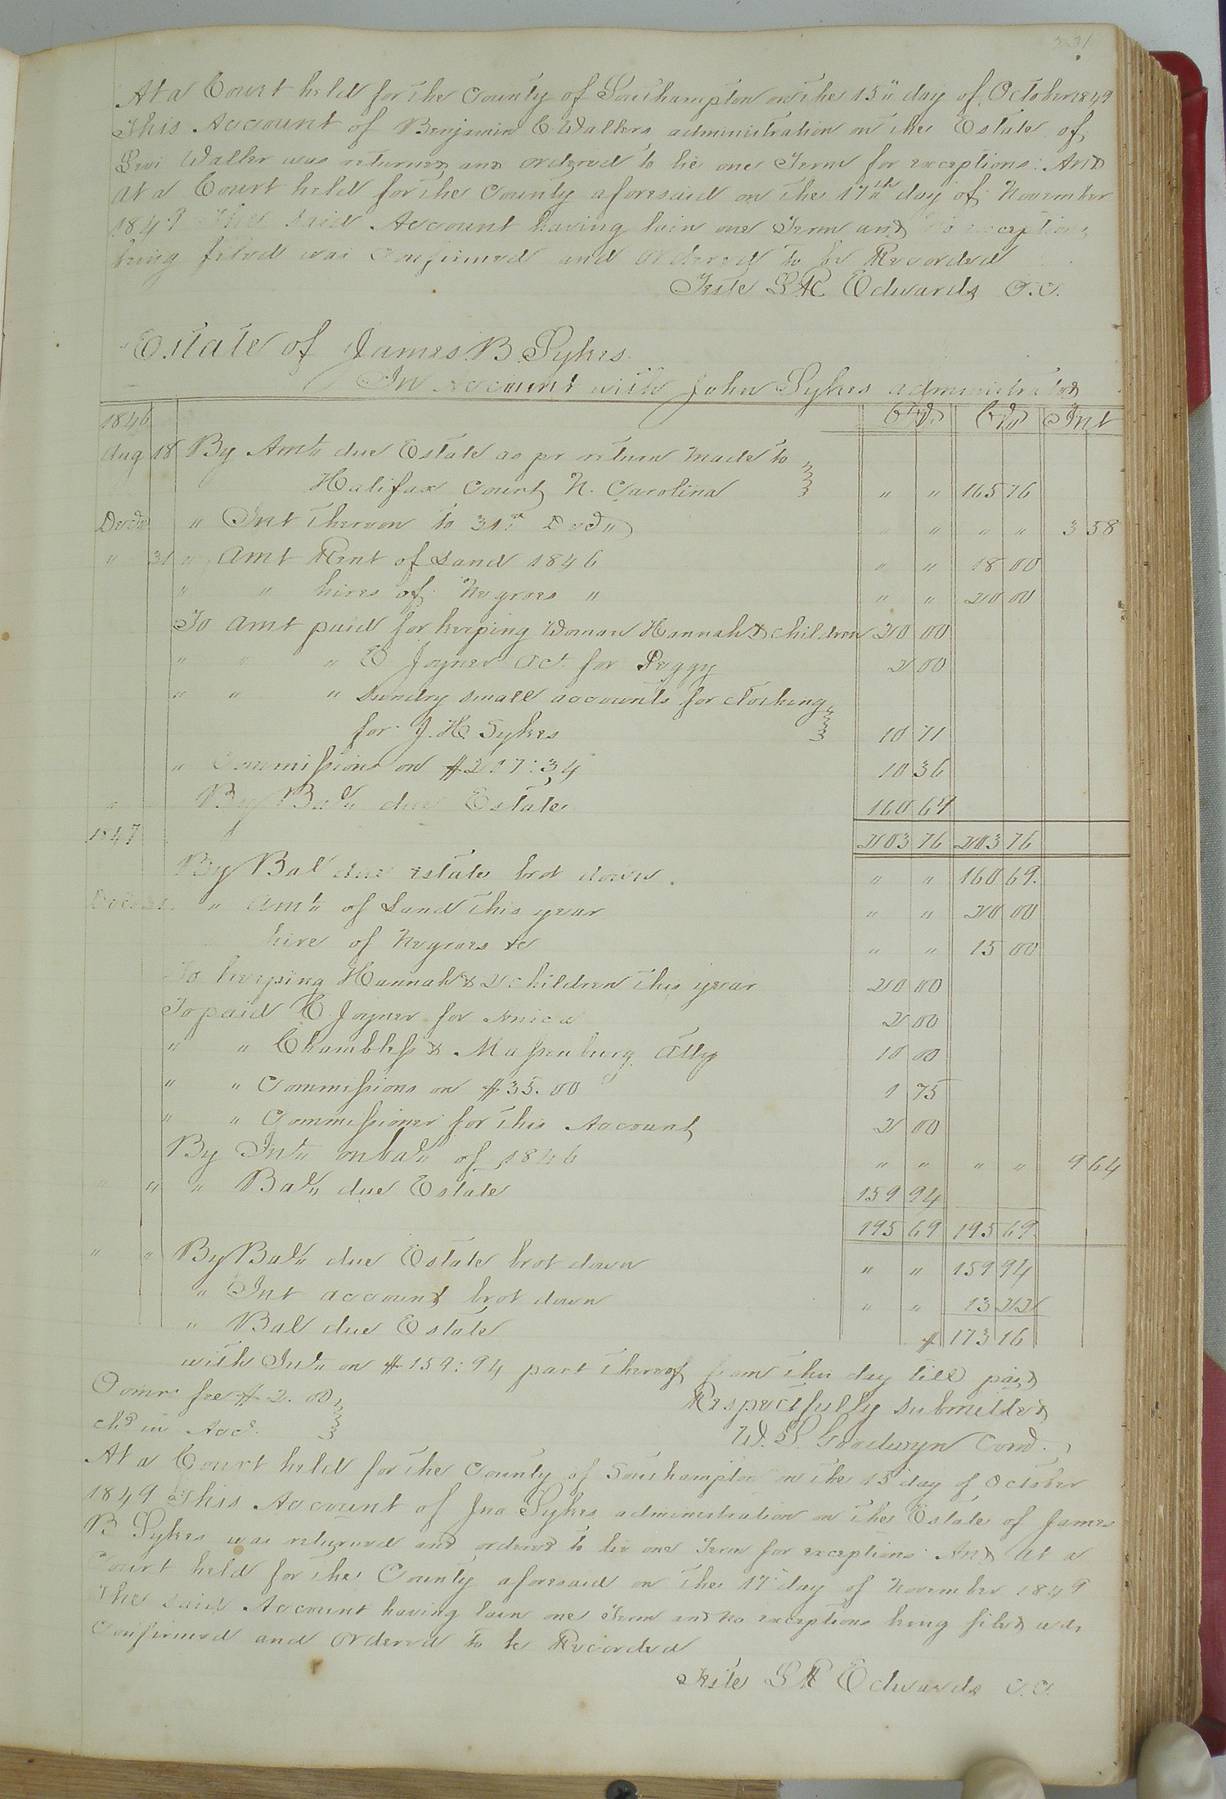 At a Court held for the County of Southampton on the 15" day of October 1849
This Account of Benjamin C Wallers administration on the Estate of
Levi Waller was returned and ordered to lie one Term for exceptions: And
at a Court held for the County aforesaid on the 17th day of November
1849 The said Account having lain one Term and no exceptions
being filed was Confirmed and Ordered to be Recorded
Teste L R Edwards C.C.
Estate of James B. Sykes
In Account with John Sykes administrator
1846 Int
Aug 18 By Amt" due Estate as pr return made to
Halifax Court N. Carolina " " 165 76
Decr " Int thereon to 31st Decr " " " " 3 58
" 31 " Amt Rent of Land 1846 " " 18 00
" " hires of Negroes " " " 20 00
To Amt paid for keeping Woman Hannah & children 20 00
" " " E Joyner Act. for Peggy 2 00
" " " sundry small accounts for clothing
for J. H. Sykes 10 71
" Commissions on $207:34 10 36
" By Bal" due Estate 160 69
1847 203 76 203 76
By Bal due estate brot down " " 160 69
" Amt" of Land this year " " 20 00
hire of Negroes &c " " 15 00
To keeping Hannah & 2 children this year 20 00
To paid E Joyner for 2 00
" " Chambliss & Massenburg Atty 10 00
" " Commissions on $35.00 1 75
" " Commissioner for this Account 2 00
By Int" on bal" of 1846 " " " " 9 64
" " " Bal" due Estate 159 94
195 69 195 69
" " By Bal" due Estate brot down " " 159 94
" Int account brot down " " 13 22
" Bal due Estate $ 173 16
with Int" on $159:94 part thereof from this day till paid
Comr. fee $2.00 Respectfully submitted
chd in Acct. W. S. Goodwyn Com.
At a Court held for the County of Southampton on the 15 day of October
1849 This Account of Jno Sykes administration on the Estate of James
B Sykes was returned and ordered to lie one Term for exceptions And at a
Court held for the County aforesaid on the 17" day of November 1849
The said Account having lain one Term and no exceptions being filed was
Confirmed and Ordered to be Recorded
Teste L R Edwards C.C.